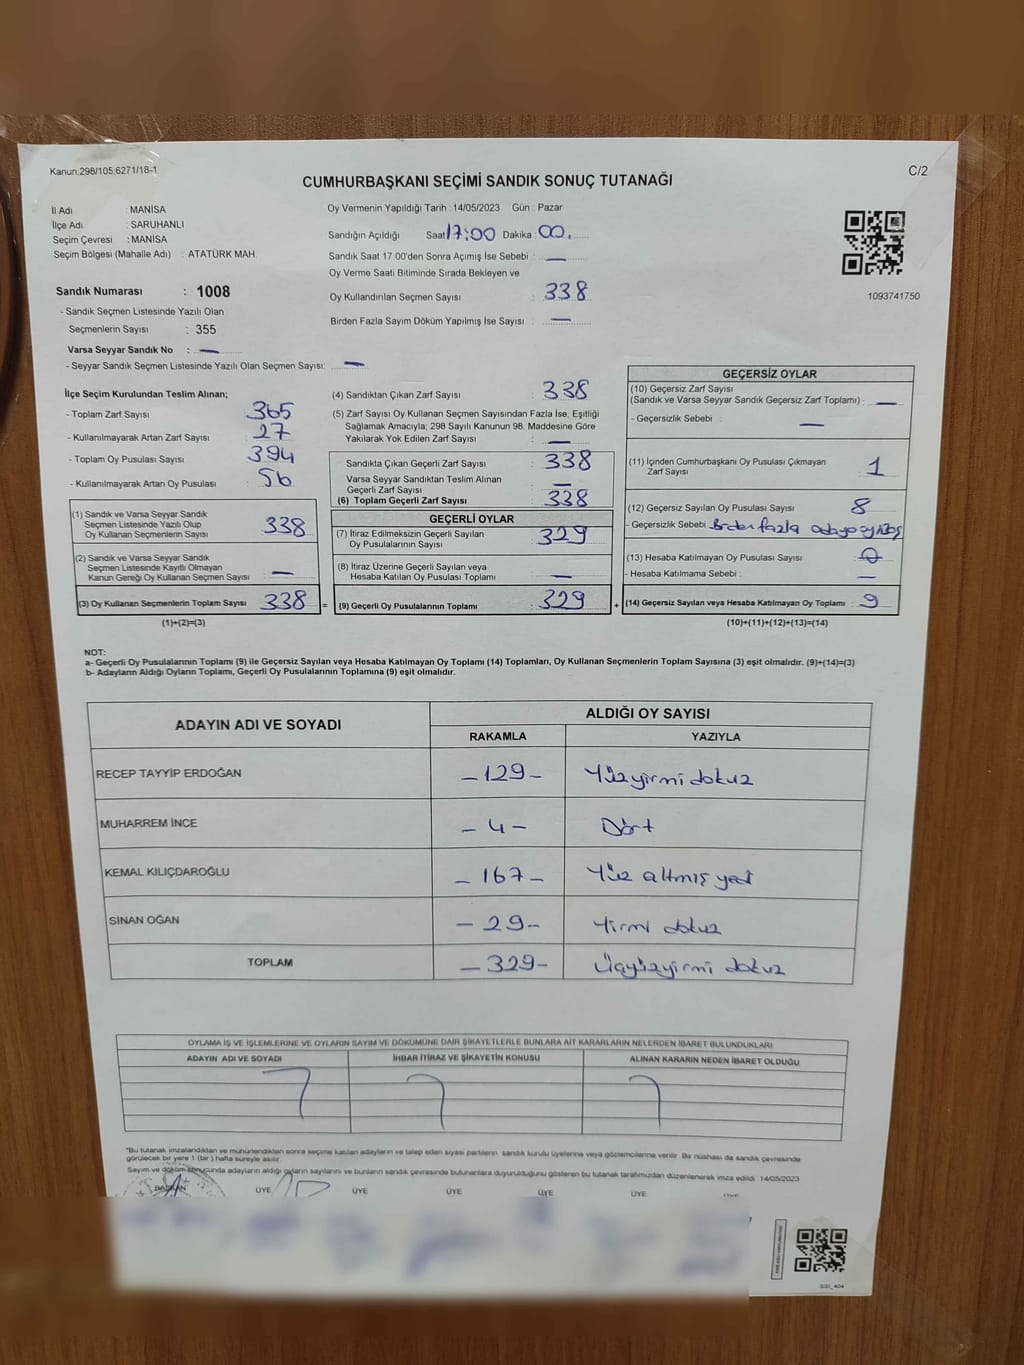 Kanun;298/105;6271/18-1
C/2
CUMHURBAŞKANI SEÇİMİ SANDIK SONUÇ TUTANAĞI
İl Adı : MANİSA
İlçe Adı : SARUHANLI
Seçim Çevresi : MANİSA
Seçim Bölgesi (Mahalle Adı) : ATATÜRK MAH.
Sandık Numarası : 1008
- Sandık Seçmen Listesinde Yazılı Olan
Seçmenlerin Sayısı : 355
Varsa Seyyar Sandık No : —
- Seyyar Sandık Seçmen Listesinde Yazılı Olan Seçmen Sayısı: —
Oy Vermenin Yapıldığı Tarih : 14/05/2023 Gün : Pazar
Sandığın Açıldığı Saat 17:00 Dakika : 00
Sandık Saat 17.00'den Sonra Açımış İse Sebebi : —
Oy Verme Saati Bitiminde Sırada Bekleyen ve
Oy Kullandırılan Seçmen Sayısı : 338
Birden Fazla Sayım Döküm Yapılmış İse Sayısı : —
1093741750
İlçe Seçim Kurulundan Teslim Alınan;
- Toplam Zarf Sayısı 365
- Kullanılmayarak Artan Zarf Sayısı 27
- Toplam Oy Pusulası Sayısı 394
- Kullanılmayarak Artan Oy Pusulası 56
(1) Sandık ve Varsa Seyyar Sandık
Seçmen Listesinde Yazılı Olup
Oy Kullanan Seçmenlerin Sayısı 338
(2) Sandık ve Varsa Seyyar Sandık
Seçmen Listesinde Kayıtlı Olmayan
Kanun Gereği Oy Kullanan Seçmen Sayısı —
(3) Oy Kullanan Seçmenlerin Toplam Sayısı 338
(1)+(2)=(3)
(4) Sandıktan Çıkan Zarf Sayısı : 338
(5) Zarf Sayısı Oy Kullanan Seçmen Sayısından Fazla İse, Eşitliği
Sağlamak Amacıyla; 298 Sayılı Kanunun 98. Maddesine Göre
Yakılarak Yok Edilen Zarf Sayısı : —
Sandıkta Çıkan Geçerli Zarf Sayısı : 338
Varsa Seyyar Sandıktan Teslim Alınan
Geçerli Zarf Sayısı : —
(6) Toplam Geçerli Zarf Sayısı : 338
GEÇERLİ OYLAR
(7) İtiraz Edilmeksizin Geçerli Sayılan
Oy Pusulalarının Sayısı : 329
(8) İtiraz Üzerine Geçerli Sayılan veya
Hesaba Katılan Oy Pusulası Toplamı : —
= (9) Geçerli Oy Pusulalarının Toplamı : 329 +
GEÇERSİZ OYLAR
(10) Geçersiz Zarf Sayısı
(Sandık ve Varsa Seyyar Sandık Geçersiz Zarf Toplamı) : —
- Geçersizlik Sebebi : —
(11) İçinden Cumhurbaşkanı Oy Pusulası Çıkmayan
Zarf Sayısı : 1
(12) Geçersiz Sayılan Oy Pusulası Sayısı : 8
- Geçersizlik Sebebi : Birden fazla adaya
(13) Hesaba Katılmayan Oy Pusulası Sayısı : 0
- Hesaba Katılmama Sebebi : —
(14) Geçersiz Sayılan veya Hesaba Katılmayan Oy Toplamı : 9
(10)+(11)+(12)+(13)=(14)
NOT:
a- Geçerli Oy Pusulalarının Toplamı (9) ile Geçersiz Sayılan veya Hesaba Katılmayan Oy Toplamı (14) Toplamları, Oy Kullanan Seçmenlerin Toplam Sayısına (3) eşit olmalıdır. (9)+(14)=(3)
b- Adayların Aldığı Oyların Toplamı, Geçerli Oy Pusulalarının Toplamına (9) eşit olmalıdır.
ADAYIN ADI VE SOYADI
ALDIĞI OY SAYISI
RAKAMLA YAZIYLA
RECEP TAYYİP ERDOĞAN -129- Yüzyirmi dokuz
MUHARREM İNCE -4- Dört
KEMAL KILIÇDAROĞLU -167- Yüz altmış yedi
SİNAN OĞAN -29- Yirmi dokuz
TOPLAM -329- Üçyüzyirmi dokuz
OYLAMA İŞ VE İŞLEMLERİNE VE OYLARIN SAYIM VE DÖKÜMÜNE DAİR ŞİKAYETLERLE BUNLARA AİT KARARLARIN NELERDEN İBARET BULUNDUKLARI
ADAYIN ADI VE SOYADI İHBAR İTİRAZ VE ŞİKAYETİN KONUSU ALINAN KARARIN NEDEN İBARET OLDUĞU
*Bu tutanak imzalandıktan ve mühürlendikten sonra seçime katılan adayların ve talep eden siyasi partilerin sandık kurulu üyelerine veya gözlemcilerine verilir. Bir nüshası da sandık çevresinde
görülecek bir yere 1 (bir) hafta süreyle asılır.
Sayım ve döküm sonucunda adayların aldığı oyların sayılarını ve bunların sandık çevresinde bulunanlara duyurulduğunu gösteren bu tutanak tarafımızdan düzenlenerek imza edildi. 14/05/2023
BAŞKAN ÜYE ÜYE ÜYE ÜYE ÜYE ÜYE